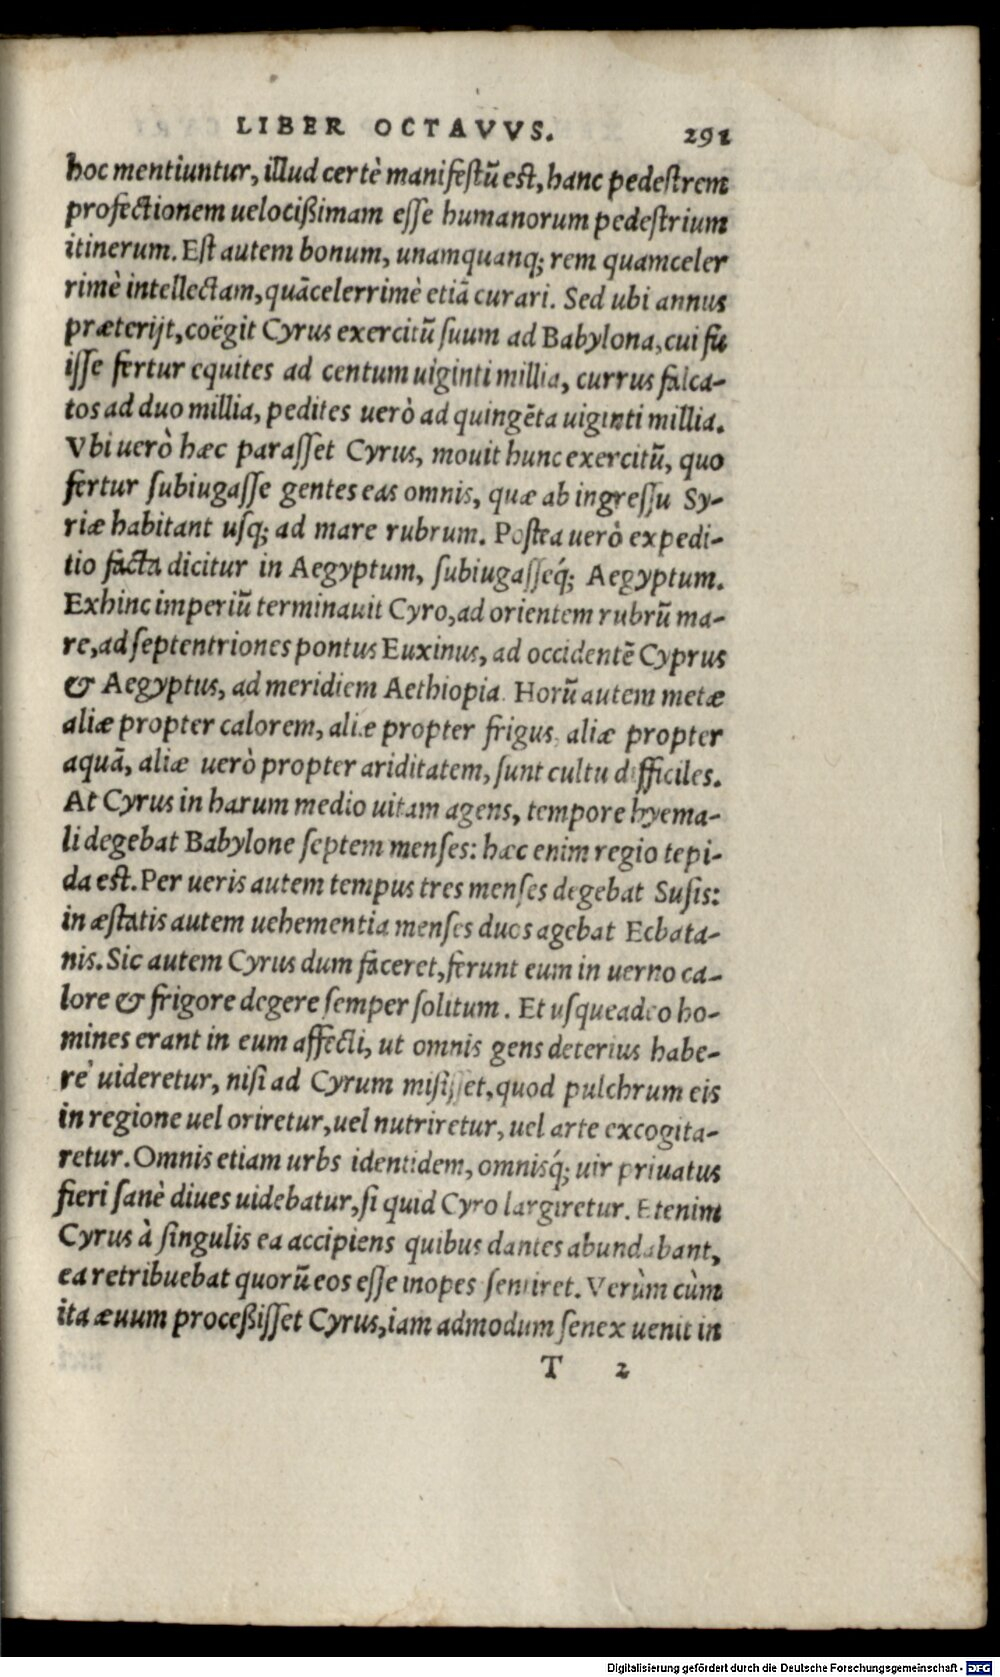 LIBER OCTAVVS. 291
hoc mentiuntur, illud certè manifeſtũ eſt, hanc pedeſtrem
profectionem uelocißimam eſſe humanorum pedeſtrium
itinerum. Eſt autem bonum, unamquanq; rem quamceler
rimè intellectam, quãcelerrimè etiã curari. Sed ubi annus
præterijt, coëgit Cyrus exercitũ ſuum ad Babylona, cui fu
iſſe fertur equites ad centum uiginti millia, currus falca-
tos ad duo millia, pedites uerò ad quingẽta uiginti millia.
Vbi uerò hæc paraſſet Cyrus, mouit hunc exercitũ, quo
fertur ſubiugaſſe gentes eas omnis, quæ ab ingreſſu Sy-
riæ habitant uſq; ad mare rubrum. Poſtea uerò expedi-
tio facta dicitur in Aegyptum, ſubiugaſſeq́; Aegyptum.
Exhinc imperiũ terminauit Cyro, ad orientem rubrũ ma-
re, ad ſeptentriones pontus Euxinus, ad occidentẽ Cyprus
& Aegyptus, ad meridiem Aethiopia. Horũ autem metæ
aliæ propter calorem, aliæ propter frigus, aliæ propter
aquã, aliæ uerò propter ariditatem, ſunt cultu difficiles.
At Cyrus in harum medio uitam agens, tempore hyema-
li degebat Babylone ſeptem menſes: hæc enim regio tepi-
da eſt. Per ueris autem tempus tres menſes degebat Suſis:
in æſtatis autem uehementia menſes duos agebat Ecbata-
nis. Sic autem Cyrus dum faceret, ferunt eum in uerno ca-
lore & frigore degere ſemper ſolitum. Et uſqueadeo ho-
mines erant in eum affecti, ut omnis gens deterius habe-
re uideretur, niſi ad Cyrum miſiſſet, quod pulchrum eis
in regione uel oriretur, uel nutriretur, uel arte excogita-
retur. Omnis etiam urbs identidem, omnisq́; uir priuatus
fieri ſanè diues uidebatur, ſi quid Cyro largiretur. Etenim
Cyrus à ſingulis ea accipiens quibus dantes abundabant,
ea retribuebat quorũ eos eſſe inopes ſentiret. Verùm cùm
ita æuum proceßiſſet Cyrus, iam admodum ſenex uenit in
T 2
Digitalisierung gefördert durch die Deutsche Forschungsgemeinschaft - DFG